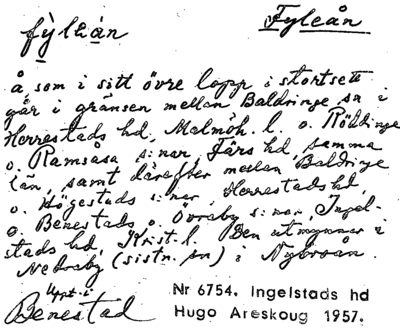 fỳleàn Fyleån
å som i sitt övre lopp i stort sett
går i gränsen mellan Baldringe sn i
Herrestads hd, Malmöh. l. o. Röddinge
o. Ramsåsa s:nar, Färs hd, samma
län, samt därefter mellan Baldringe
o. Högestads s:nar, Herrestads hd,
o. Benestads o. Övraby s:nar, Ingel-
stads hd, Krist. l. Den utmynnar i
Nedraby (sistn. sn) i Nybroån.
Uppt. i
Benestad
Nr 6754. Ingelstads hd
Hugo Areskoug 1957.